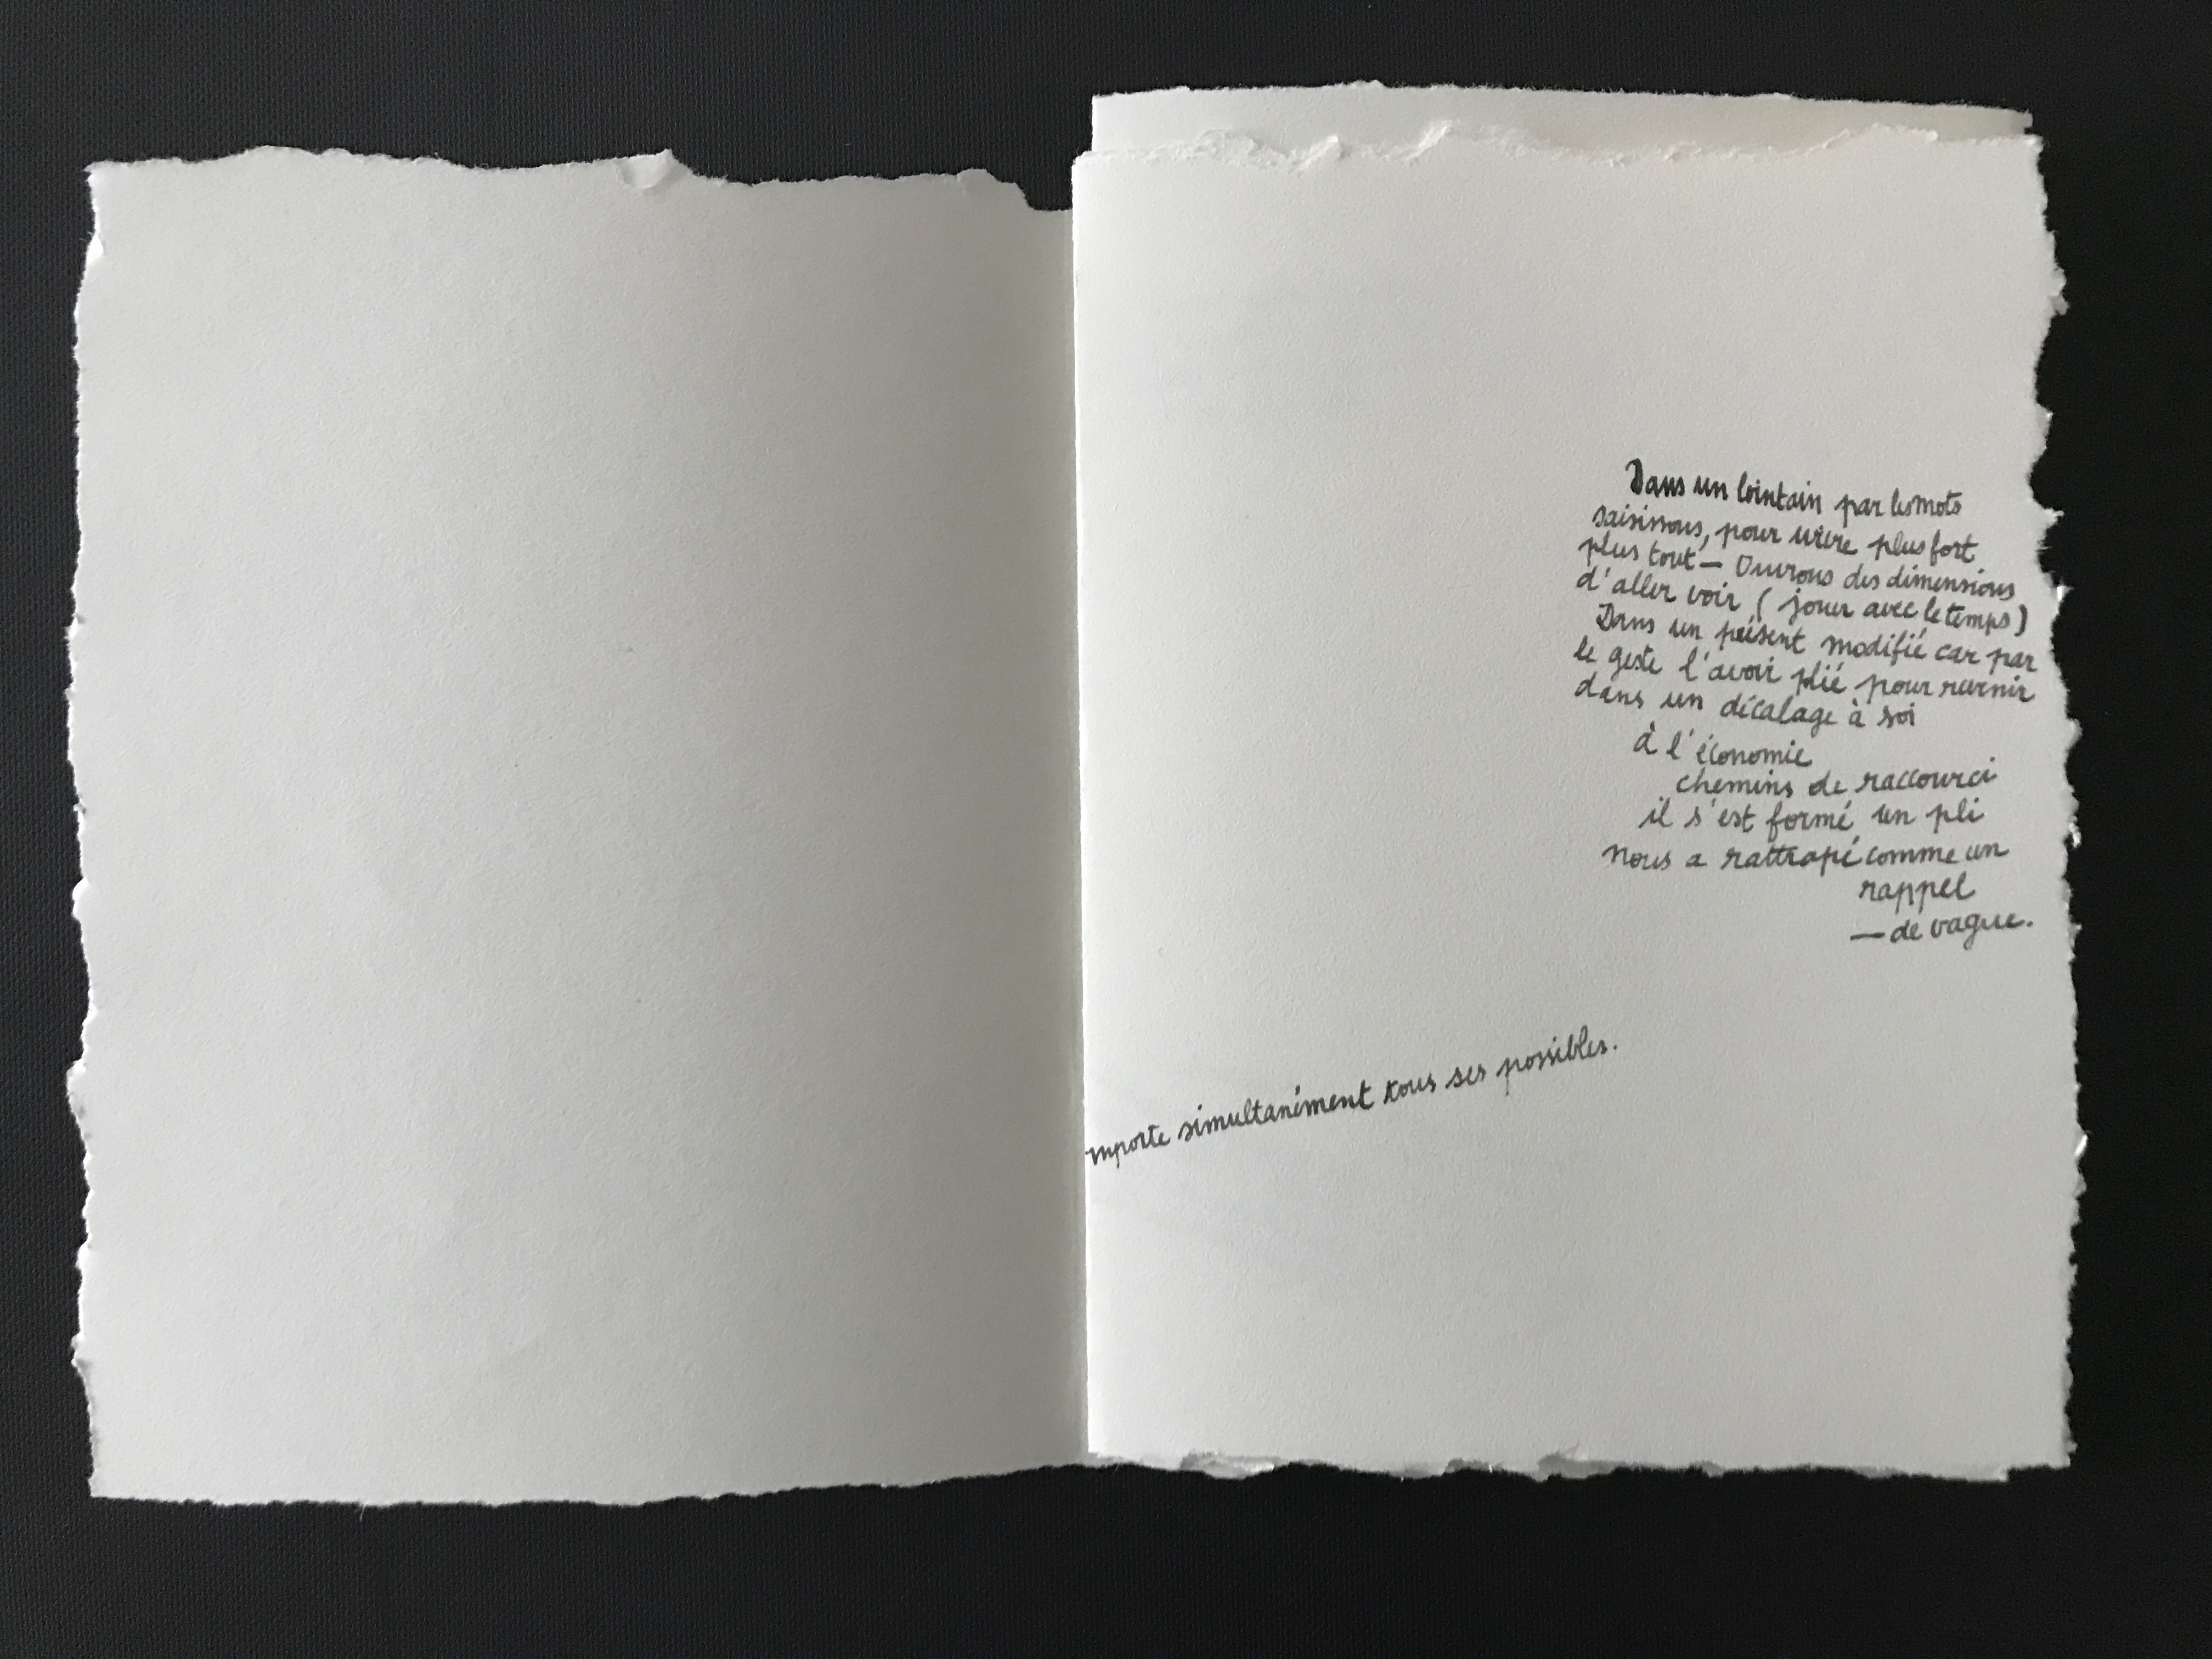 Dans un lointain par les mots
saisissons, pour vivre plus fort
plus tout — Ouvrons des dimensions
d'aller voir ( jouer avec le temps)
Dans un présent modifié car par
le geste l'avoir plié pour revenir
dans un décalage à soi
à l'économie
chemins de raccourci
il s'est formé un pli
nous a rattrapé comme un
rappel
— de vague.
mporte simultanément tous ses possibles.